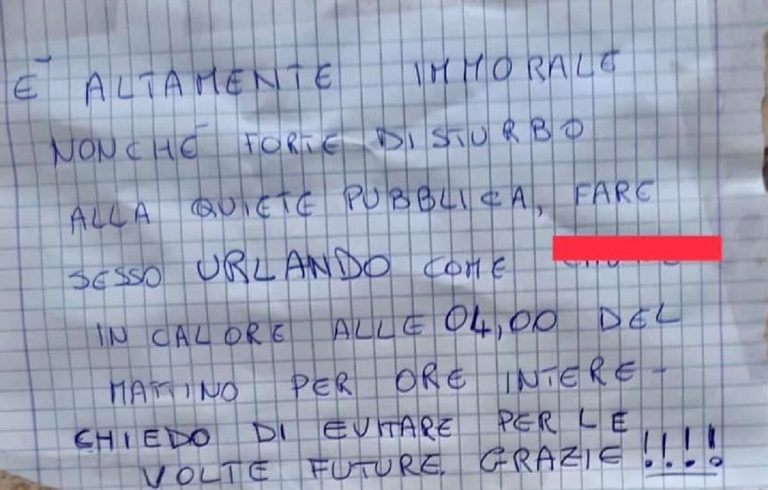 È ALTAMENTE IMMORALE
NONCHÉ FORTE DISTURBO
ALLA QUIETE PUBBLICA, FARE
SESSO URLANDO COME
IN CALORE ALLE 04,00 DEL
MATTINO PER ORE INTERE -
CHIEDO DI EVITARE PER LE
VOLTE FUTURE. GRAZIE !!!!